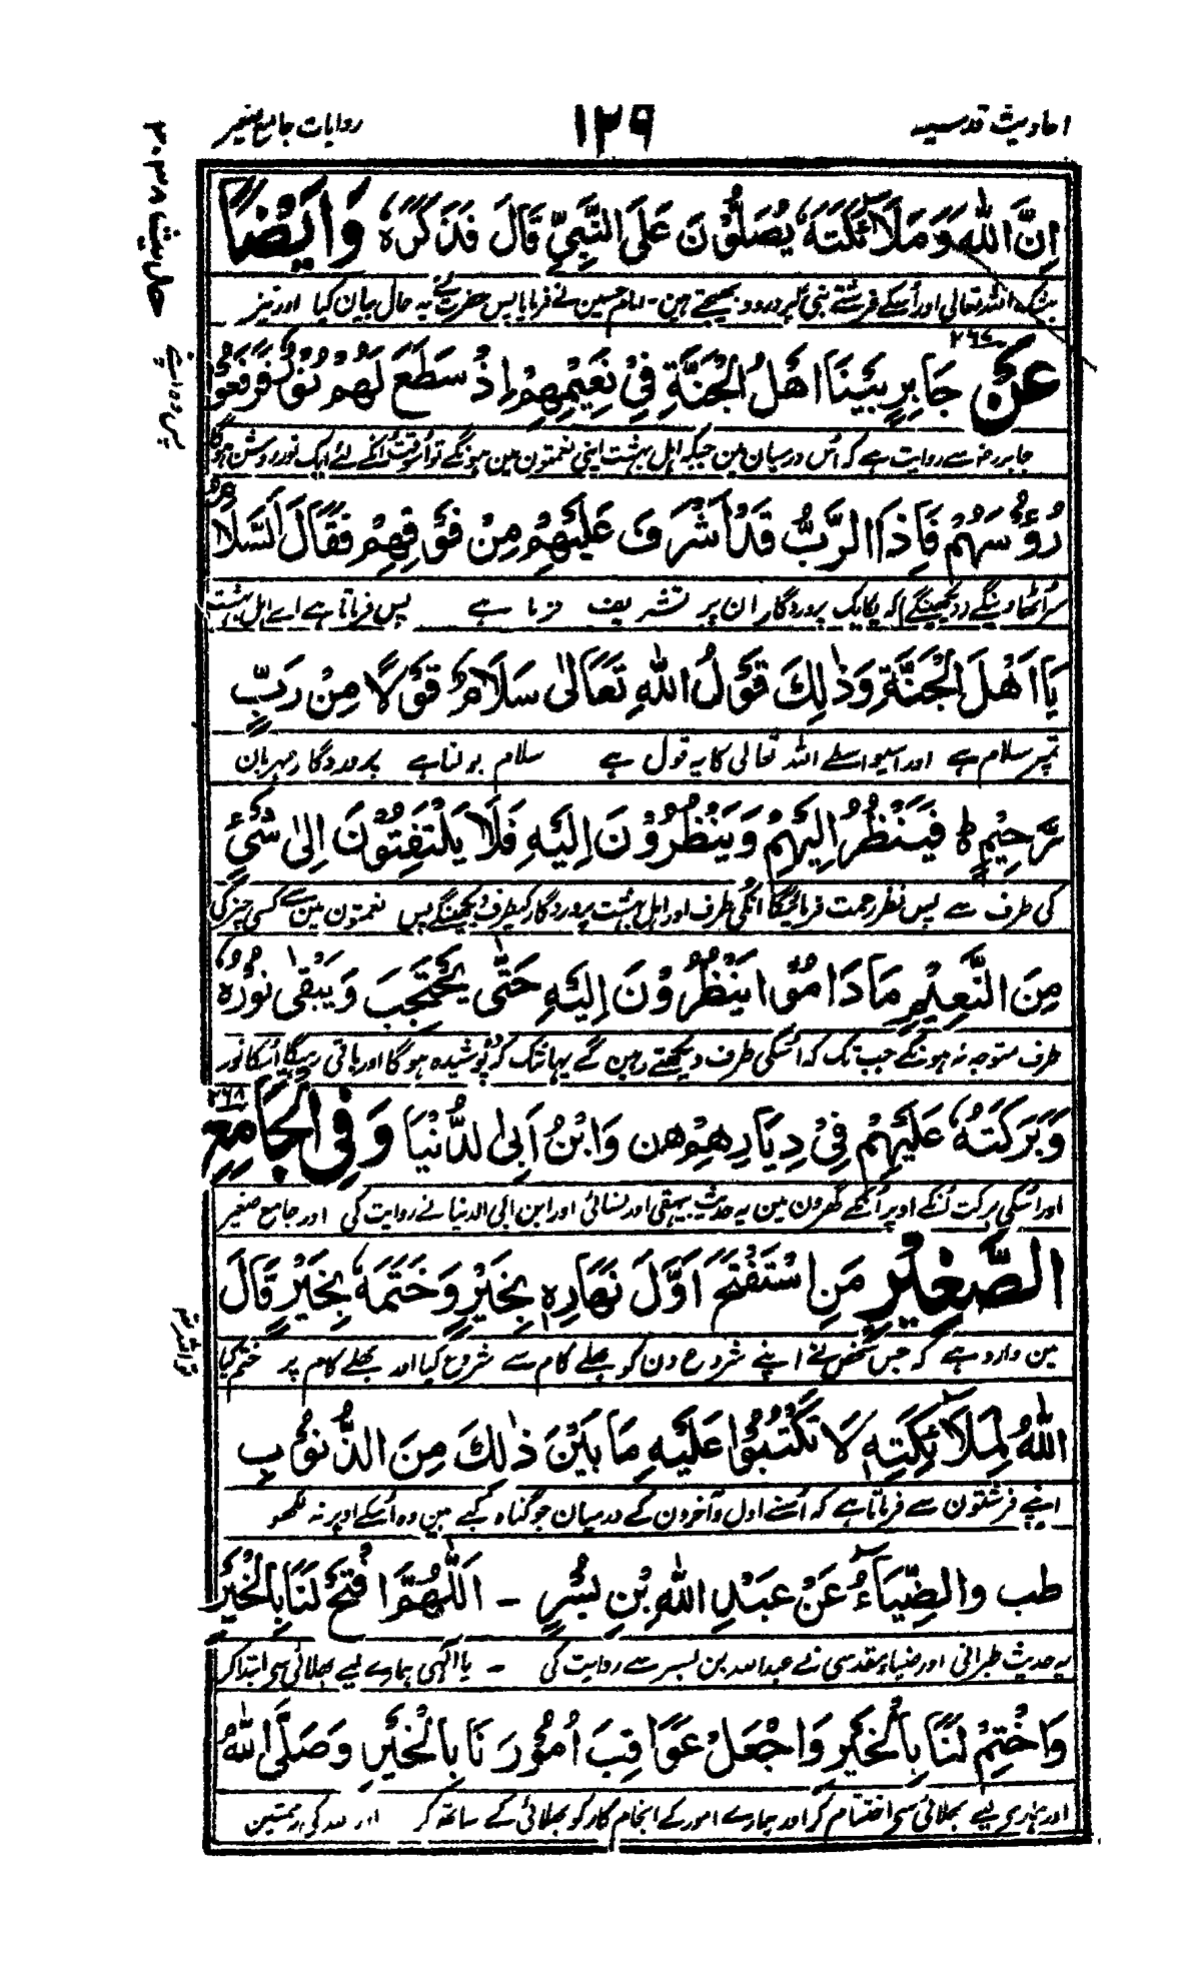 احادیث قدسیہ
۱۲۹
روایات جامع صغیر
اِنَّ اللّٰهَ وَمَلَآئِكَتَهٗ يُصَلُّوْنَ عَلَى النَّبِيِّ قَالَ فَذَكَرَهٗ وَاَيْضًا
بیشک اللہ تعالی اور اُسکے فرشتے نبی پر درود بھیجتے ہین۔ امام حسین نے فرمایا پس حضرت نے یہ حال بیان کیا اور نیز
۲۶۷
عَنْ جَابِرٍ بَيْنَا اَهْلُ الْجَنَّةِ فِيْ نَعِيْمِهِمْ اِذْ سَطَعَ لَهُمْ نُوْرٌ فَرَفَعُوْا
جابر رض سے روایت ہے کہ اُس درمیان مین جبکہ اہل بہشت اپنی نعمتون مین ہونگے تو اُسوقت اُنکے لئے ایک نور روشن ہوگا
رُؤُسَهُمْ فَاِذَا الرَّبُّ قَدْ اَشْرَفَ عَلَيْهِمْ مِنْ فَوْقِهِمْ فَقَالَ السَّلَامُ
سر اُٹھاوینگے دیکھینگے کہ یکایک پروردگار ان پر تشریف فرما ہے پس فرماتا ہے اے اہل بہشت
يَا اَهْلَ الْجَنَّةِ وَذٰلِكَ قَوْلُ اللّٰهِ تَعَالٰى سَلَامٌ قَوْلًا مِنْ رَبٍّ
تمپر سلام ہے اور اسیواسطے اللہ تعالی کا یہ قول ہے سلام بولنا ہے پروردگار مہربان
رَّحِيْمٍ ط فَيَنْظُرُ اِلَيْهِمْ وَيَنْظُرُوْنَ اِلَيْهِ فَلَا يَلْتَفِتُوْنَ اِلٰى شَيْءٍ
کی طرف سے پس نظر رحمت فرمائیگا انکی طرف اور اہل بہشت پروردگار کیطرف دیکھینگے پس نعمتون مین سے کسی چیز کی
مِنَ النَّعِيْمِ مَا دَامُوْا يَنْظُرُوْنَ اِلَيْهِ حَتّٰى يَحْتَجِبَ وَيَبْقٰى نُوْرُهٗ
طرف متوجہ نہ ہونگے جب تک کہ اُسکی طرف دیکھتے رہین گے یہانتک کہ پوشیدہ ہوگا اور باقی رہیگا اُسکا نور
۲۶۸
وَبَرَكَتُهٗ عَلَيْهِمْ فِيْ دِيَارِهِمْ هن وَابْنُ اَبِى الدُّنْيَا وَفِى الْجَامِعِ
اور اُسکی برکت اُنکے اوپر اُنکے گھرون مین یہ حدیث بیہقی اور نسائی اور ابن ابی الدنیا نے روایت کی اور جامع صغیر
الصَّغِيْرِ مَنِ اسْتَفْتَحَ اَوَّلَ نَهَارِهٖ بِخَيْرٍ وَخَتَمَهٗ بِخَيْرٍ قَالَ
مین وارد ہے کہ جس شخص نے اپنے شروع دن کو بھلے کام سے شروع کیا اور بھلے کام پر ختم کیا
اللّٰهُ لِمَلَآئِكَتِهٖ لَا تَكْتُبُوْا عَلَيْهِ مَا بَيْنَ ذٰلِكَ مِنَ الذُّنُوْبِ
اپنے فرشتون سے فرماتا ہے کہ اُسنے اول و آخر دن کے درمیان جو گناہ کیے ہین وہ اُسکے اوپر نہ لکھو
طب والضِّيَآءُ عَنْ عَبْدِ اللّٰهِ بْنِ بُسْرٍ ۔ اَللّٰهُمَّ افْتَحْ لَنَا بِالْخَيْرِ
یہ حدیث طبرانی اور ضیاء مقدسی نے عبداللہ بن بسر سے روایت کی ۔ یا الٰہی ہمارے لیے بھلائی سے ابتدا کر
وَاخْتِمْ لَنَا بِالْخَيْرِ وَاجْعَلْ عَوَاقِبَ اُمُوْرِنَا بِالْخَيْرِ وَصَلَّى اللّٰهُ
اور ہمارے لیے بھلائی سے اختتام کر اور ہمارے امور کے انجام کار کو بھلائی کے ساتھ کر اور اللہ کی رحمتین